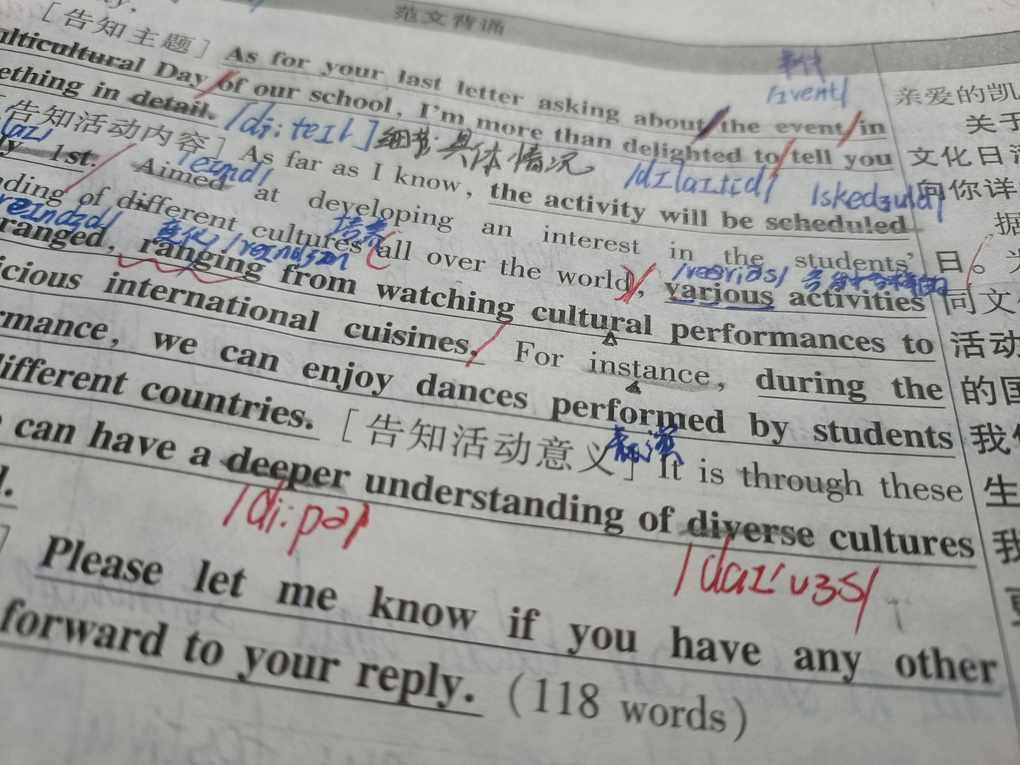 范文背诵
[告知主题] As for your last letter asking about the event in
Multicultural Day of our school, I'm more than delighted to tell you
something in detail. /di:teɪl] 细节;具体情况 /dɪlaɪtɪd/
/ɪvent/
[告知活动内容] As far as I know, the activity will be scheduled
1st. Aimed at developing an interest in the students'
/eɪmd/
培养
of different cultures all over the world, various activities
ranged, ranging from watching cultural performances to
international cuisines. For instance, during the
performance, we can enjoy dances performed by students
different countries. [告知活动意义] It is through these
表演
can have a deeper understanding of diverse cultures
/di:pər/
/daɪ'vɜs/
Please let me know if you have any other
forward to your reply. (118 words)
亲爱的凯
关于
文化日活
向你详
据
日。为
同文化
活动
的国
我们
生
我
更